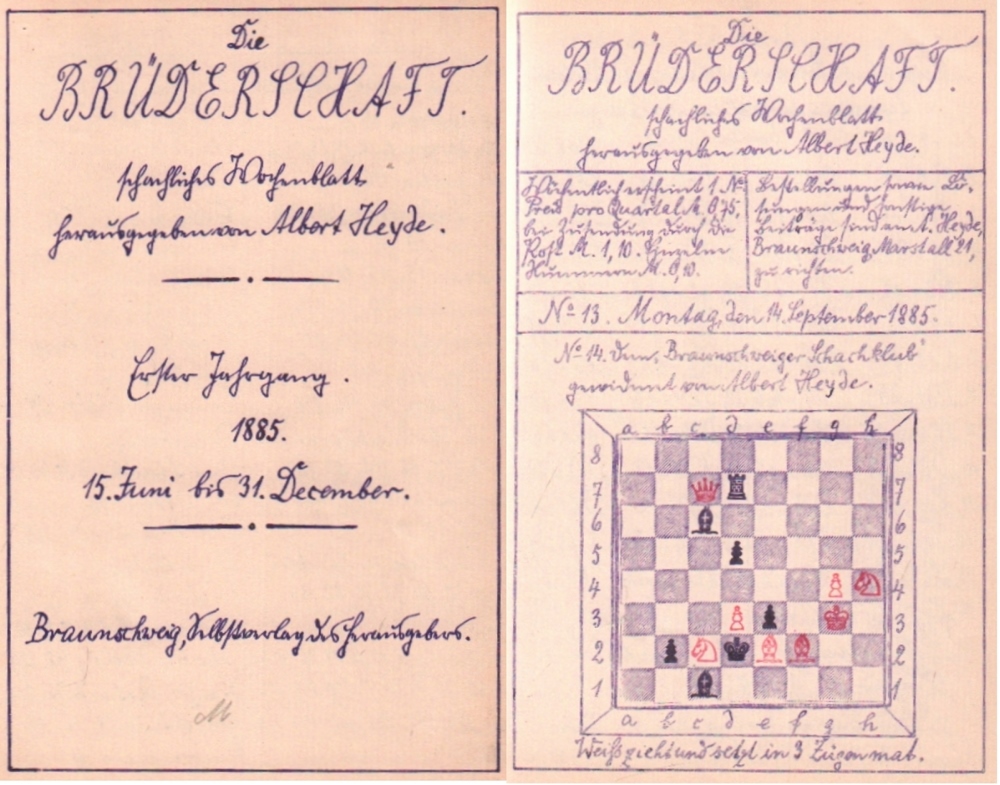 Die
BRÜDERSCHAFT.
schachliches Wochenblatt
herausgegeben von Albert Heyde.
Erster Jahrgang.
1885.
15. Juni bis 31. December.
Braunschweig, Selbstverlag des Herausgebers.
M
Die
BRÜDERSCHAFT.
schachliches Wochenblatt
herausgegeben von Albert Heyde.
Wöchentlich erscheint 1 No.
Preis pro Quartal M. 0,75,
bei Zusendung durch die
Post M. 1,10. Einzelne
Nummern M. 0,10.
Bestellungen sowie Lö-
sungen und sonstige
Beiträge sind an A. Heyde,
Braunschweig, Marstall 21,
zu richten.
No 13. Montag, den 14. September 1885.
No 14. Dem „Braunschweiger Schachklub“
gewidmet von Albert Heyde.
a b c d e f g h
8 8
7 7
6 6
5 5
4 4
3 3
2 2
1 1
a b c d e f g h
Weiß zieht und setzt in 3 Zügen mat.